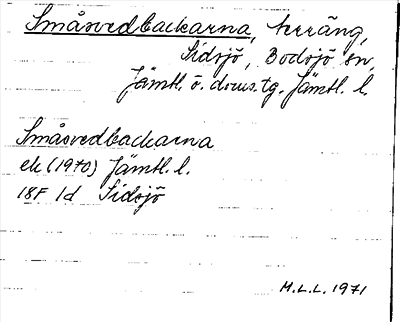 Småsvedbackarna, terräng,
Sidsjö, Bodsjö sn,
Jämtl. ö. doms. tg. Jämtl. l.
Småsvedbackarna
ek (1970) Jämtl. l.
18F 1d Sidsjö
M.L.L. 1971